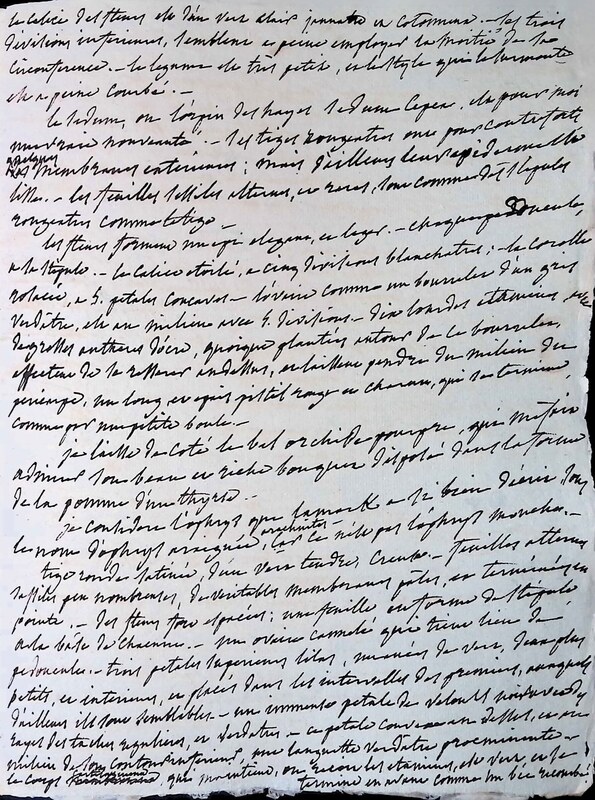 le calice des fleurs est d'un verd clair jaunatre et cotonneux. - les trois
divisions inferieures, semblent a peine employer la moitié de la
circonference. - le legume est très petit, et le style qui le surmonte
est a peine courbé. -
le sedum, ou l'orpin des hayes sedum cepea, est pour moi
une vraie nouveauté. - les tiges rougeatres ont pour contreforts
quelques membranes exterieures; mais d'ailleurs leur epiderme est
lisse. - les feuilles sessiles alternes, et rares, sont comme des stipules
rougeatres comme la tige -
les fleurs forment un epi elegant, et leger. - chaque pedoncule,
a la stipule. - le calice etoilé, a cinq divisions blanchatres; - la corolle
rosacée, a 5. petales concaves - l'ovaire comme un bourrelet d'un gris
verdâtre, est au milieu avec 5. divisions. - dix lourdes etamines, avec
de grosses antheres d'ocre, quoique plantées autour de ce bourrelet,
affectent de se resserrer au dessus, et laissent pendre du milieu du
groupe, un long, et epais pistil rouge et charnu, qui se termine,
comme par une petite boule. -
je laisse de coté le bel orchis de pourpre, qui m'a fait
admirer son beau et riche bouquet disposé dans la forme
de la pomme d'un thyrse. -
je considere l'ophrys que lamarck a si bien décrit, sous
le nom d'ophrys araignée, arachnites car ce n'est pas l'ophrys mouche. -
tige ronde satinée, d'un verd tendre, creuse. - feuilles alternes
sessiles peu nombreuses, de veritables membranes pâles, et terminées en
pointe. - des fleurs fort espacées; une feuille en forme de stipule
a la bâse de chacune. - un ovaire cannelé qui tient lieu de
pedoncule. - trois petales superieurs lilas, nuancés de verd, deux plus
petits, et interieurs, et placés dans les intervalles des premiers, auxquels
d'ailleurs ils sont semblables. - un immense petale de velours noir avec des
rayes des taches regulieres, et verdatres - ce petale convexe au dessus, et au
milieu de son contour inferieur, une languette verdâtre proeminente. -
le corps, qui maintient, ou recoit les etamines, est verd, et se
termine en avant comme un bec recourbé